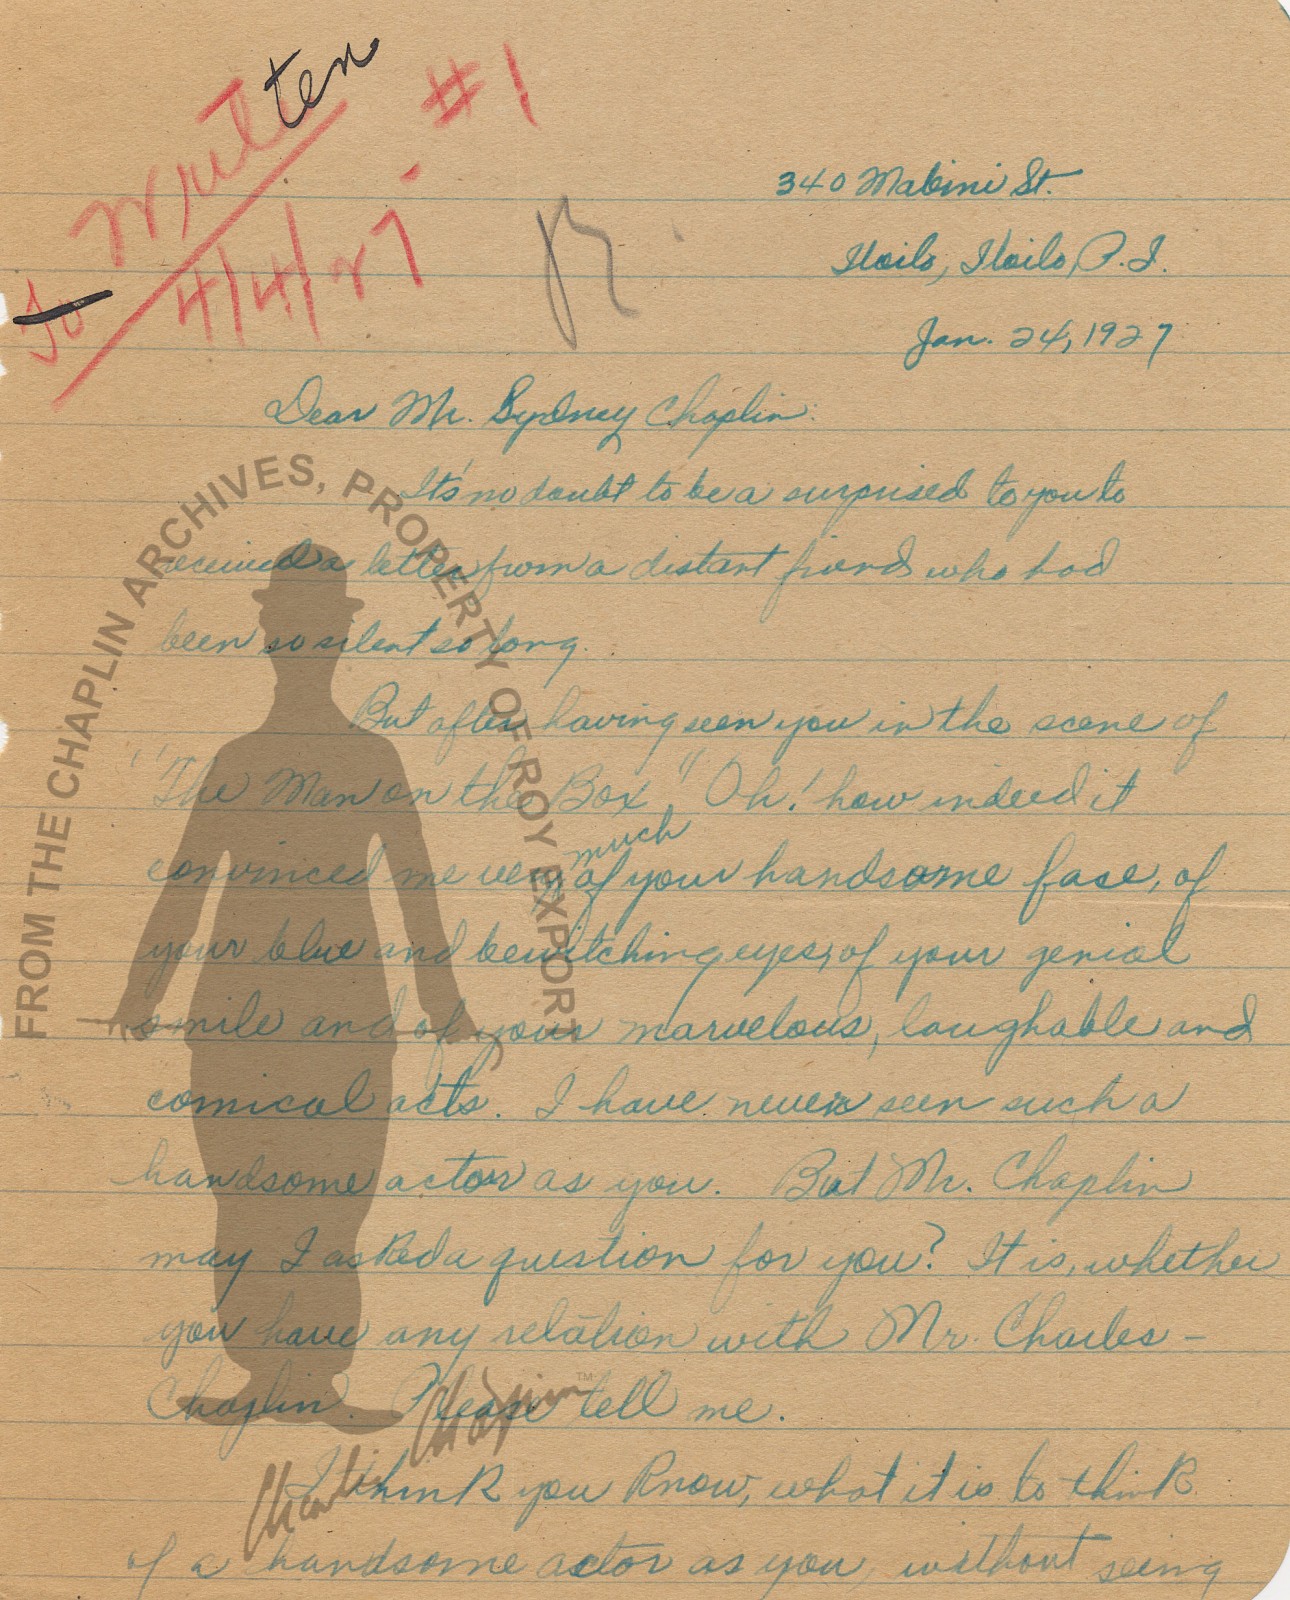 Written #1
To 4/4/27
340 Mabini St.
Iloilo, Iloilo, P.I.
Jan. 24, 1927
Dear Mr. Sydney Chaplin:
It's no doubt to be a surprised to you to
received a letter from a distant friend who had
been so silent so long.
But after having seen you in the scene of
"The Man on the Box," Oh! how indeed it
much
convinced me very of your handsome fase, of
your blue and bewitching eyes, of your genial
smile and of your marvelous, laughable and
comical acts. I have never seen such a
handsome actor as you. But Mr. Chaplin
may I asked a question for you? It is, whether
you have any relation with Mr. Charles-
Chaplin. Please tell me.
I think you know, what it is to think
of a handsome actor as you, without seeing
FROM THE CHAPLIN ARCHIVES, PROPERTY OF ROY EXPORT
Charlie Chaplin™